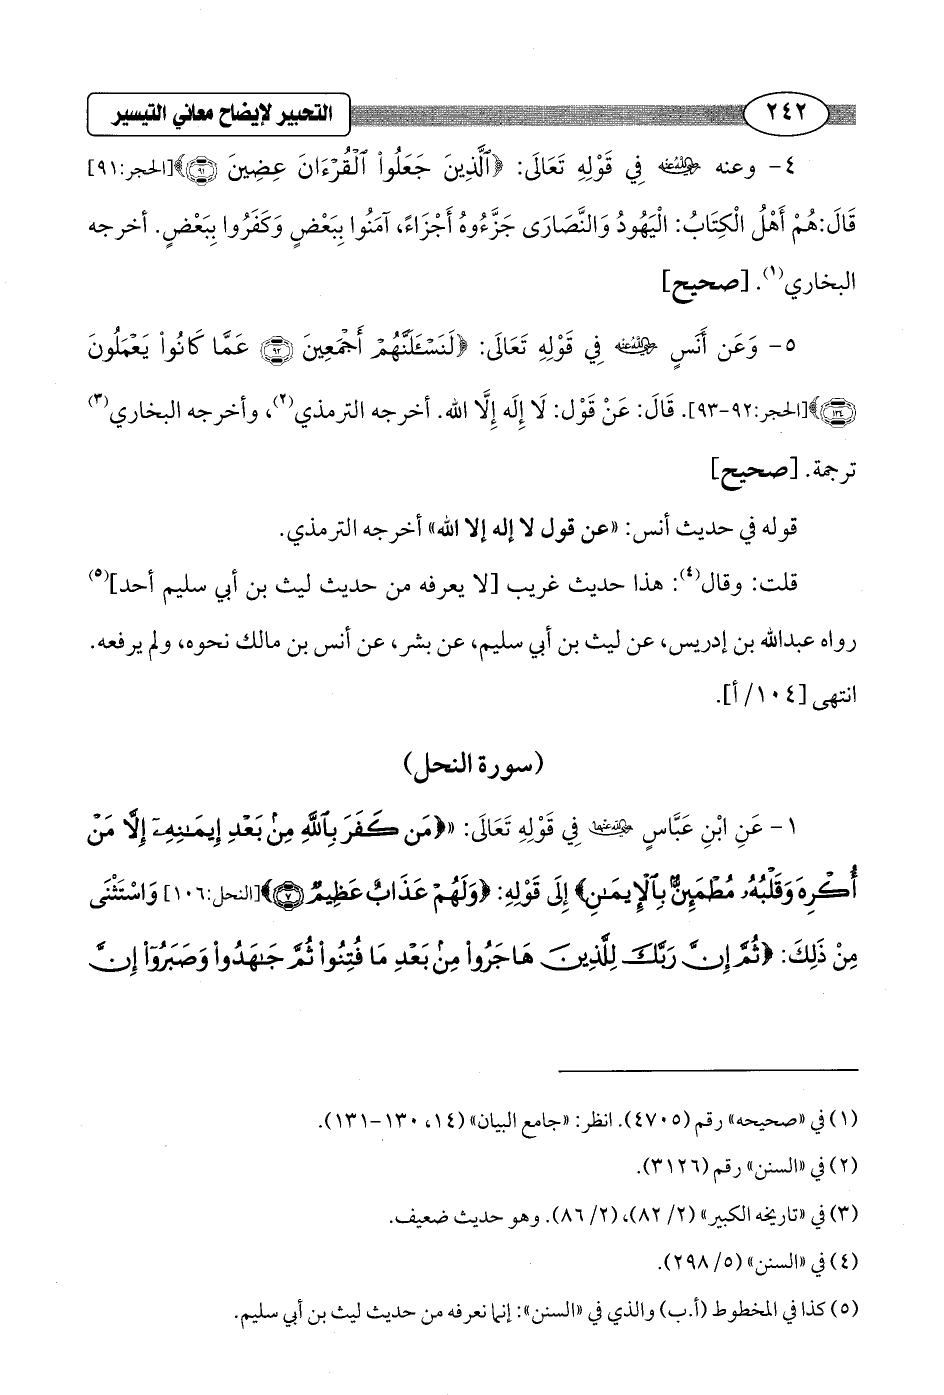 ٢٤٢ التحبير لإيضاح معاني التيسير
٤- وعنه رضي الله عنه فِي قَوْلِهِ تَعَالَى: ﴿ٱلَّذِينَ جَعَلُواْ ٱلْقُرْءَانَ عِضِينَ ٩١﴾[الحجر:٩١]
قَالَ:هُمْ أَهْلُ الْكِتَابُ: الْيَهُودُ وَالنَّصَارَى جَزَّءُوهُ أَجْزَاءً، آمَنُوا بِبَعْضٍ وَكَفَرُوا بِبَعْضٍ. أخرجه
البخاري(١). [صحيح]
٥- وَعَن أَنَسٍ رضي الله عنه فِي قَوْلِهِ تَعَالَى: ﴿لَنَسْـَٔلَنَّهُمْ أَجْمَعِينَ ٩٢ عَمَّا كَانُواْ يَعْمَلُونَ
١٣٤﴾[الحجر:٩٢-٩٣]. قَالَ: عَنْ قَوْل: لَا إِلَه إِلَّا الله. أخرجه الترمذي(٢)، وأخرجه البخاري(٣)
ترجمة. [صحيح]
قوله في حديث أنس: «عن قول لا إله إلا الله» أخرجه الترمذي.
قلت: وقال(٤): هذا حديث غريب [لا يعرفه من حديث ليث بن أبي سليم أحد](٥)
رواه عبدالله بن إدريس، عن ليث بن أبي سليم، عن بشر، عن أنس بن مالك نحوه، ولم يرفعه.
انتهى [١٠٤/ أ].
(سورة النحل)
١- عَنِ ابْنِ عَبَّاسٍ رضي الله عنهما فِي قَوْلِهِ تَعَالَى: «﴿مَن كَفَرَ بِٱللَّهِ مِنۢ بَعْدِ إِيمَـٰنِهِۦٓ إِلَّا مَنْ
أُكْرِهَ وَقَلْبُهُۥ مُطْمَئِنٌّۢ بِٱلْإِيمَـٰنِ﴾ إِلَى قَوْلِهِ: ﴿وَلَهُمْ عَذَابٌ عَظِيمٌ ٧﴾[النحل:١٠٦] وَاسْتَثْنَى
مِنْ ذَلِكَ: ﴿ثُمَّ إِنَّ رَبَّكَ لِلَّذِينَ هَاجَرُواْ مِنۢ بَعْدِ مَا فُتِنُواْ ثُمَّ جَـٰهَدُواْ وَصَبَرُوٓاْ إِنَّ
(١) في «صحيحه» رقم (٤٧٠٥). انظر: «جامع البيان» (١٤، ١٣٠-١٣١).
(٢) في «السنن» رقم (٣١٢٦).
(٣) في «تاريخه الكبير» (٢/ ٨٢)، (٢/ ٨٦). وهو حديث ضعيف.
(٤) في «السنن» (٥/ ٢٩٨).
(٥) كذا في المخطوط (أ.ب) والذي في «السنن»: إنما نعرفه من حديث ليث بن أبي سليم.